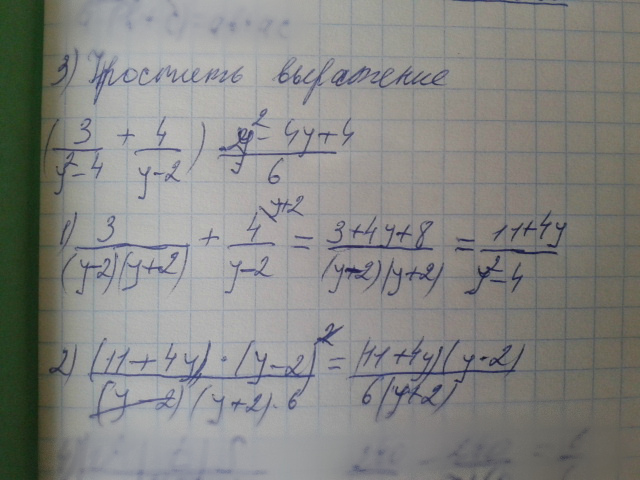 3) Упростить выражение
(3/(y²-4) + 4/(y-2)) (y²-4y+4)/6
1) 3/((y-2)(y+2)) + 4/(y-2) ^(y+2) = (3+4y+8)/((y-2)(y+2)) = (11+4y)/(y²-4)
2) ((11+4y)·(y-2)²)/((y-2)(y+2)·6) = ((11+4y)(y-2))/(6(y+2))